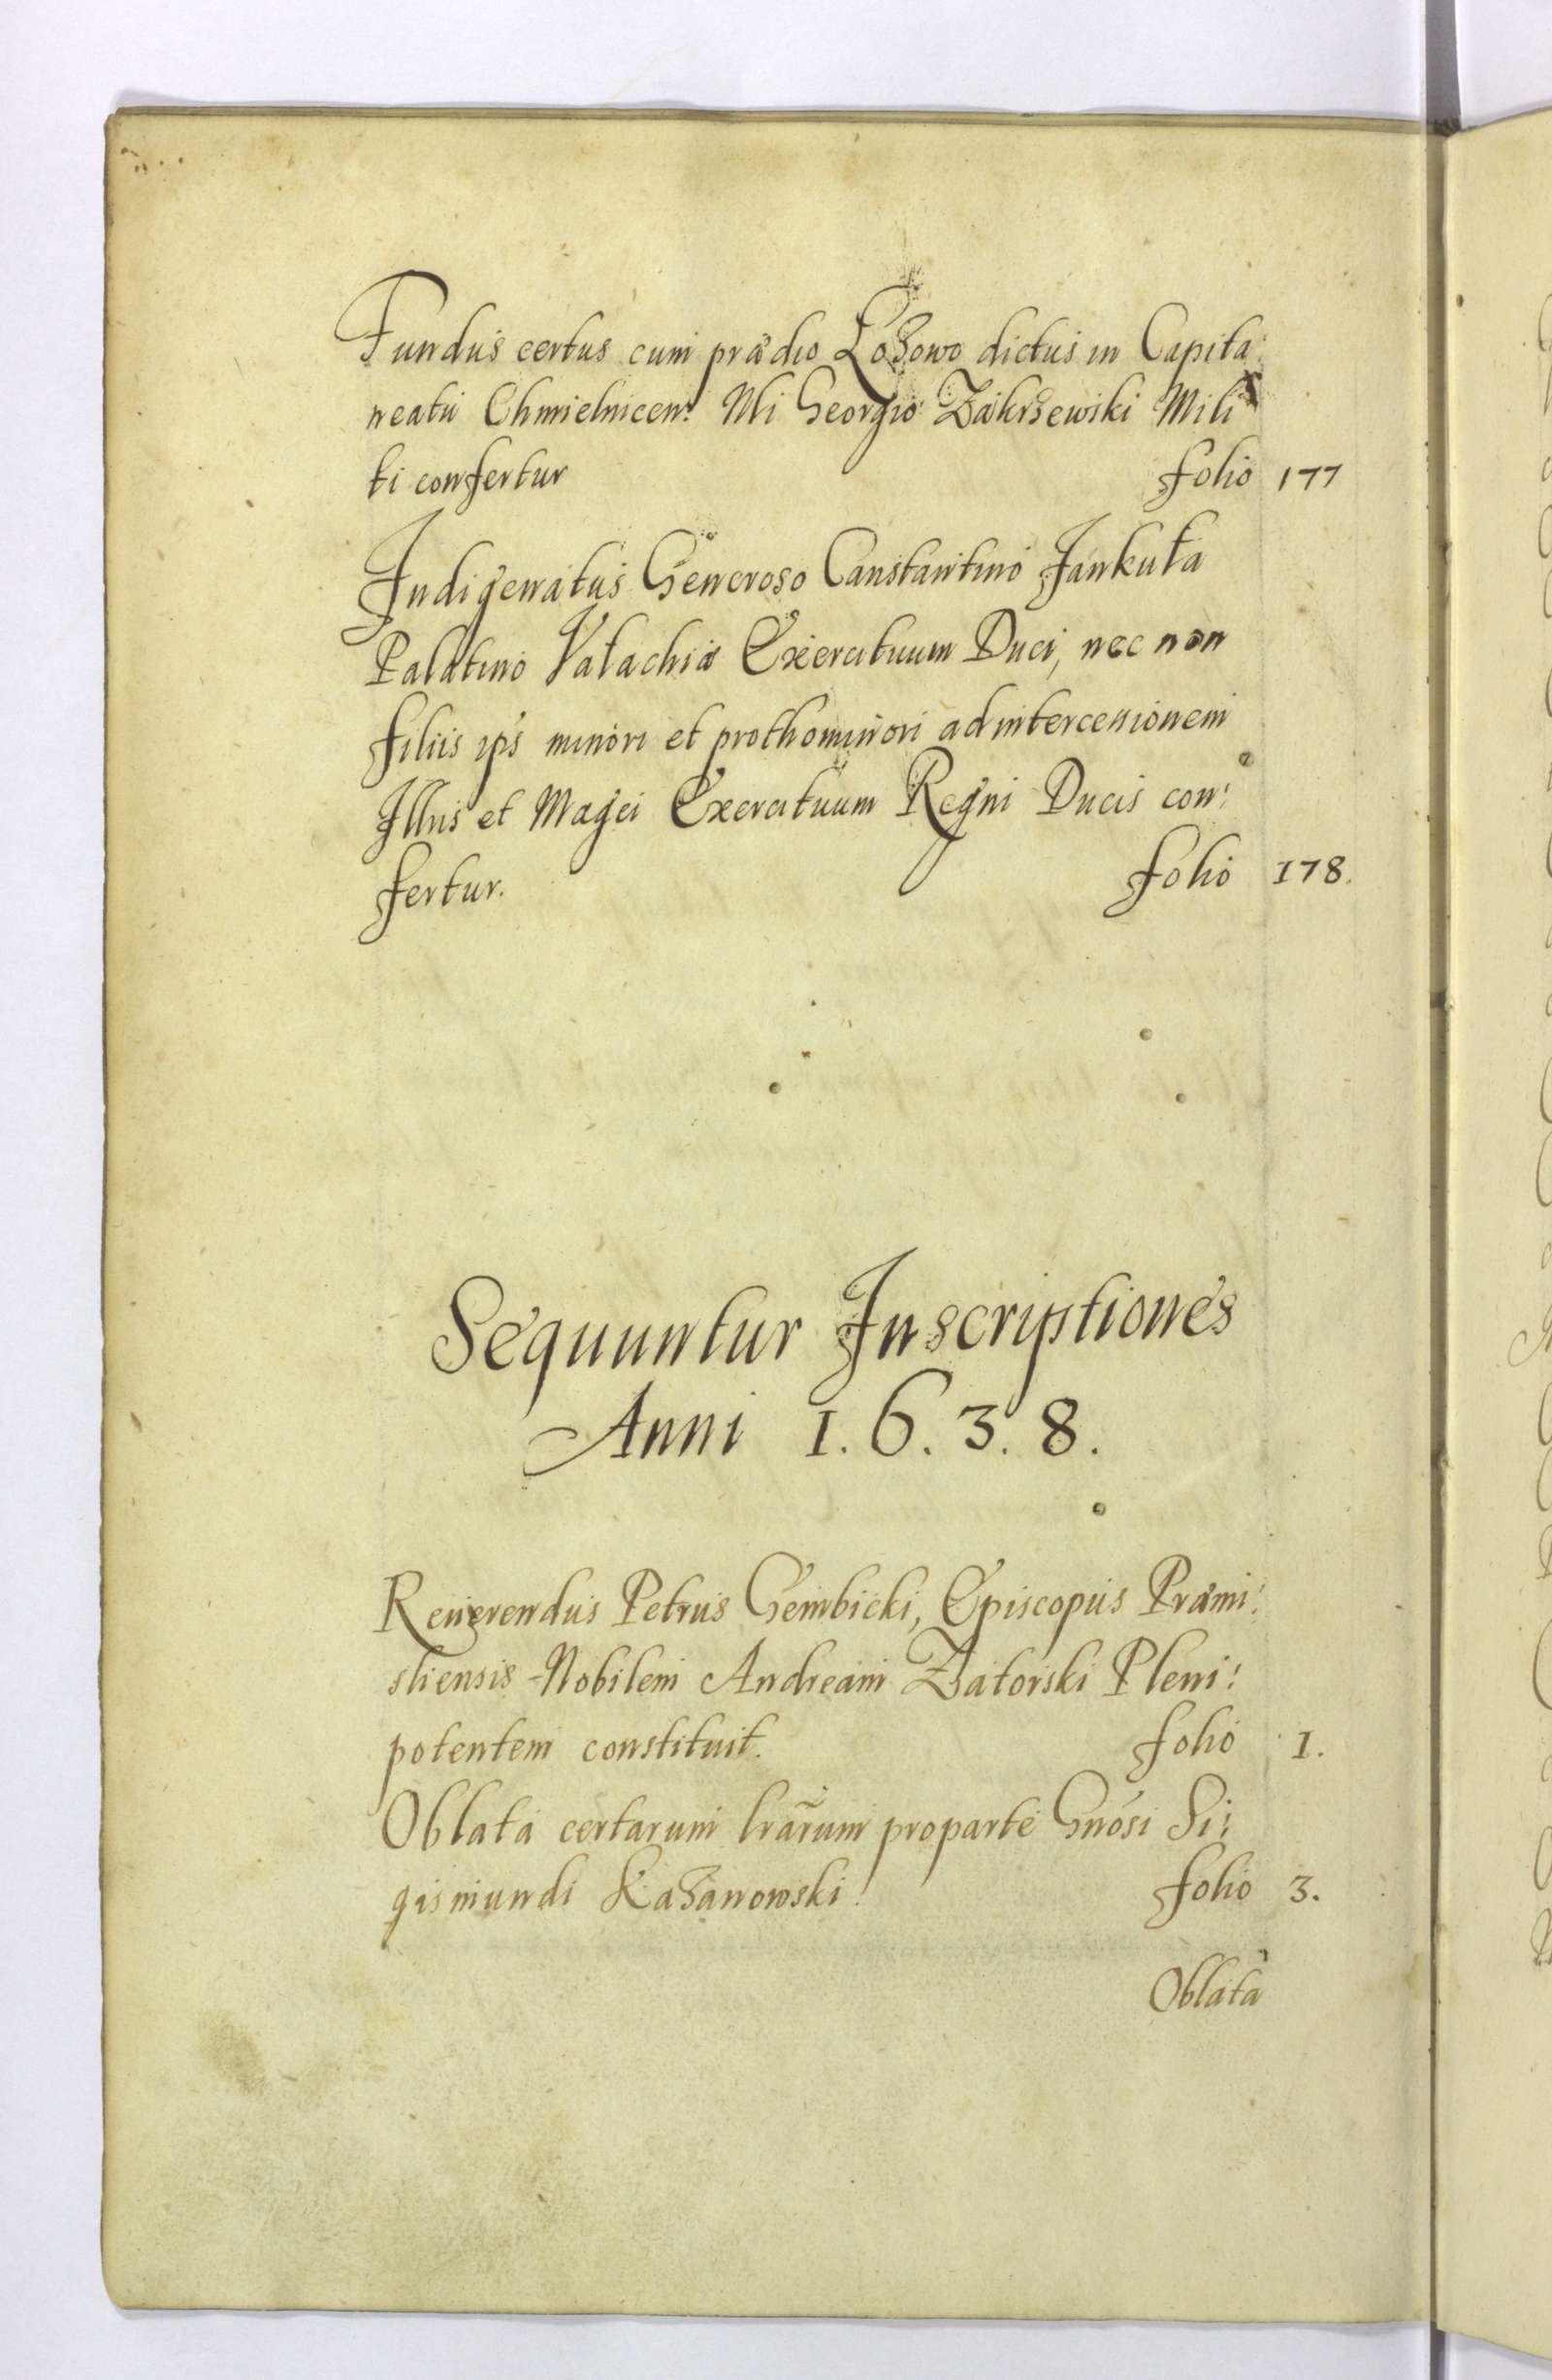 Fundus certus cum prædio Lozowo dictus in Capita:
neatu Chmielnicen: Nli Georgio Zakrzewski Mili
ti confertur folio 177
Indigenatus Generoso Canstantino Jankuła
Palatino Valachiæ Exercituum Duci, nec non
filiis ips minori et prothominori ad intercessionem
Illris et Magci Exercituum Regni Ducis con:
fertur. folio 178.
Sequuntur Inscriptiones
Anni 1.6.3.8.
Reuerendus Petrus Gembicki, Episcopus Præmi:
sliensis Nobilem Andream Zatorski Pleni:
potentem constituit. folio 1.
Oblata certarum lrārum proparte Gnosi Si:
gismundi Kazanowski. folio 3.
Oblata